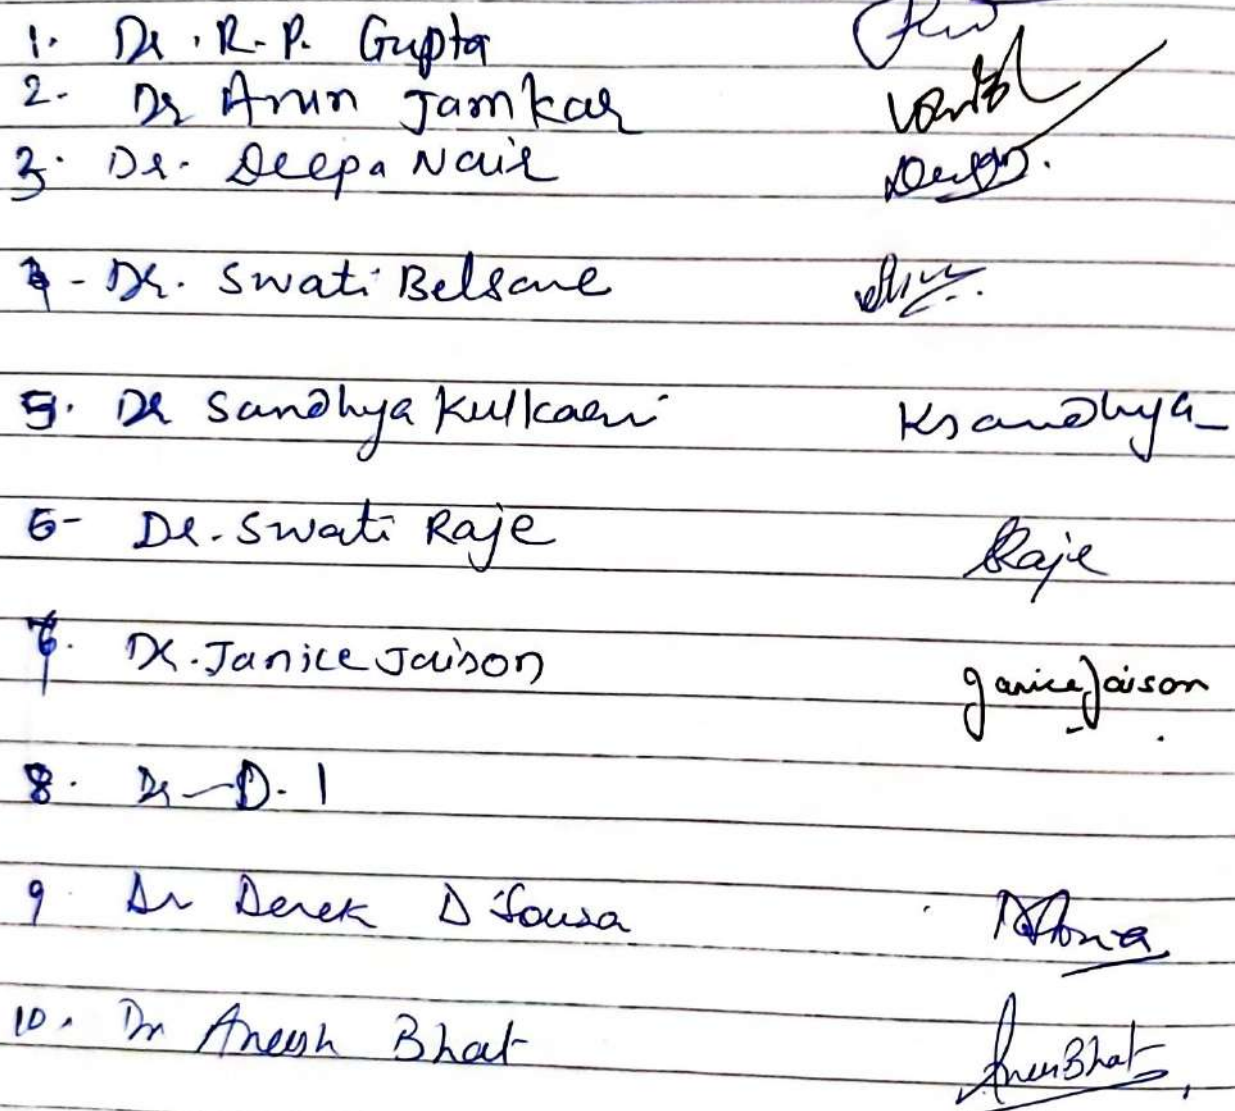 1. Dr. R. P. Gupta
2. Dr Arun Jamkar
3. Dr. Deepa Nair
4 - Dr. Swati Belsare
5. Dr Sandhya Kulkarni Ksandhya
6 - Dr. Swati Raje SRaje
7. Dr. Janice Jaison Janice Jaison
8. Dr - D. 1
9 Dr Derek D'Souza
10. Dr Aneesh Bhat Bhat